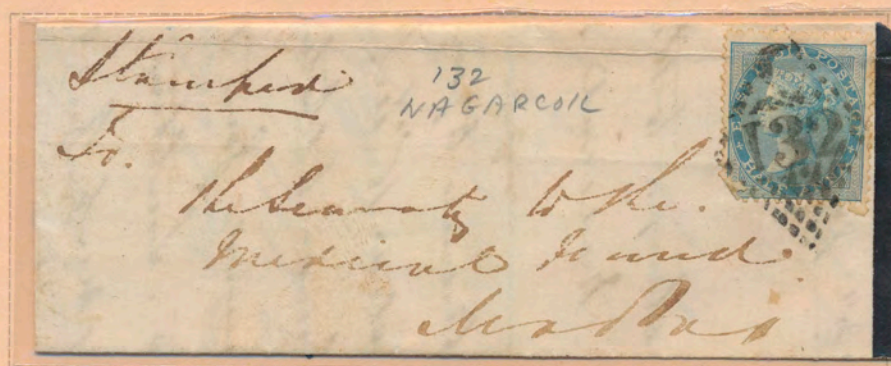 Stamped
132
NAGARCOIL
To.
The Secretary to the.
Medical Fund
Madras
POSTAGE
132
HALF